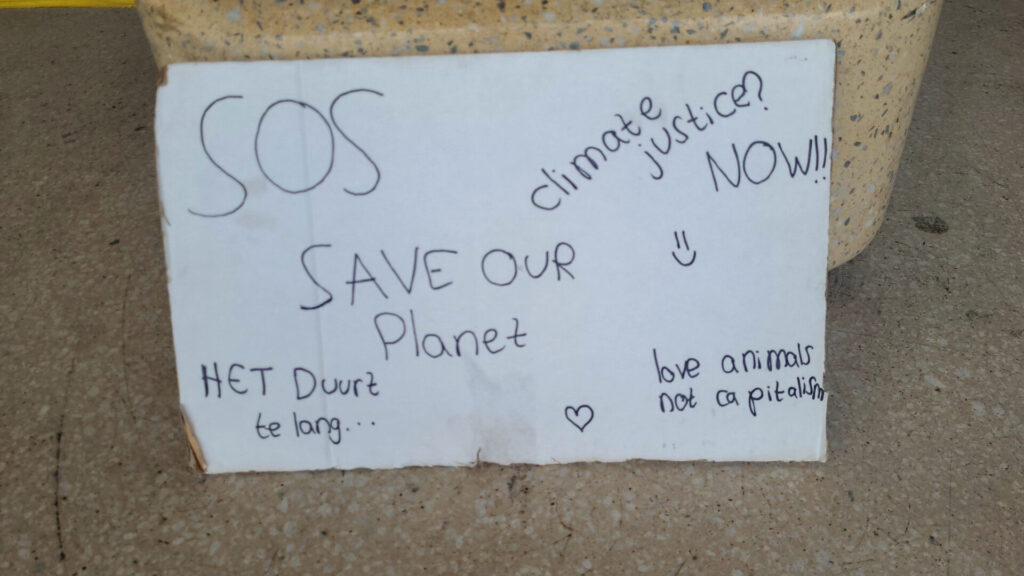 SOS
climate
justice?
NOW!!
SAVE OUR
Planet
HET Duurt
te lang...
love animals
not capitalism